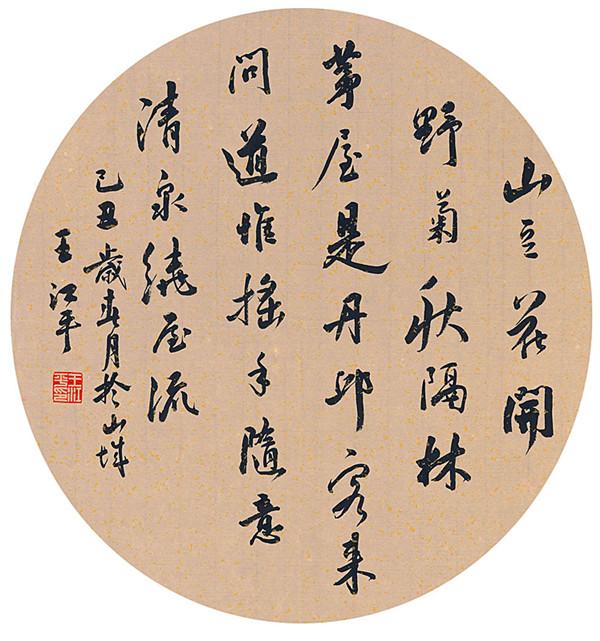 山豆花開
野菊秋隔林
茅屋是丹邱客来
問道惟搖手隨意
清泉繞屋流
己丑歲春月於山城
王江平
王江平印